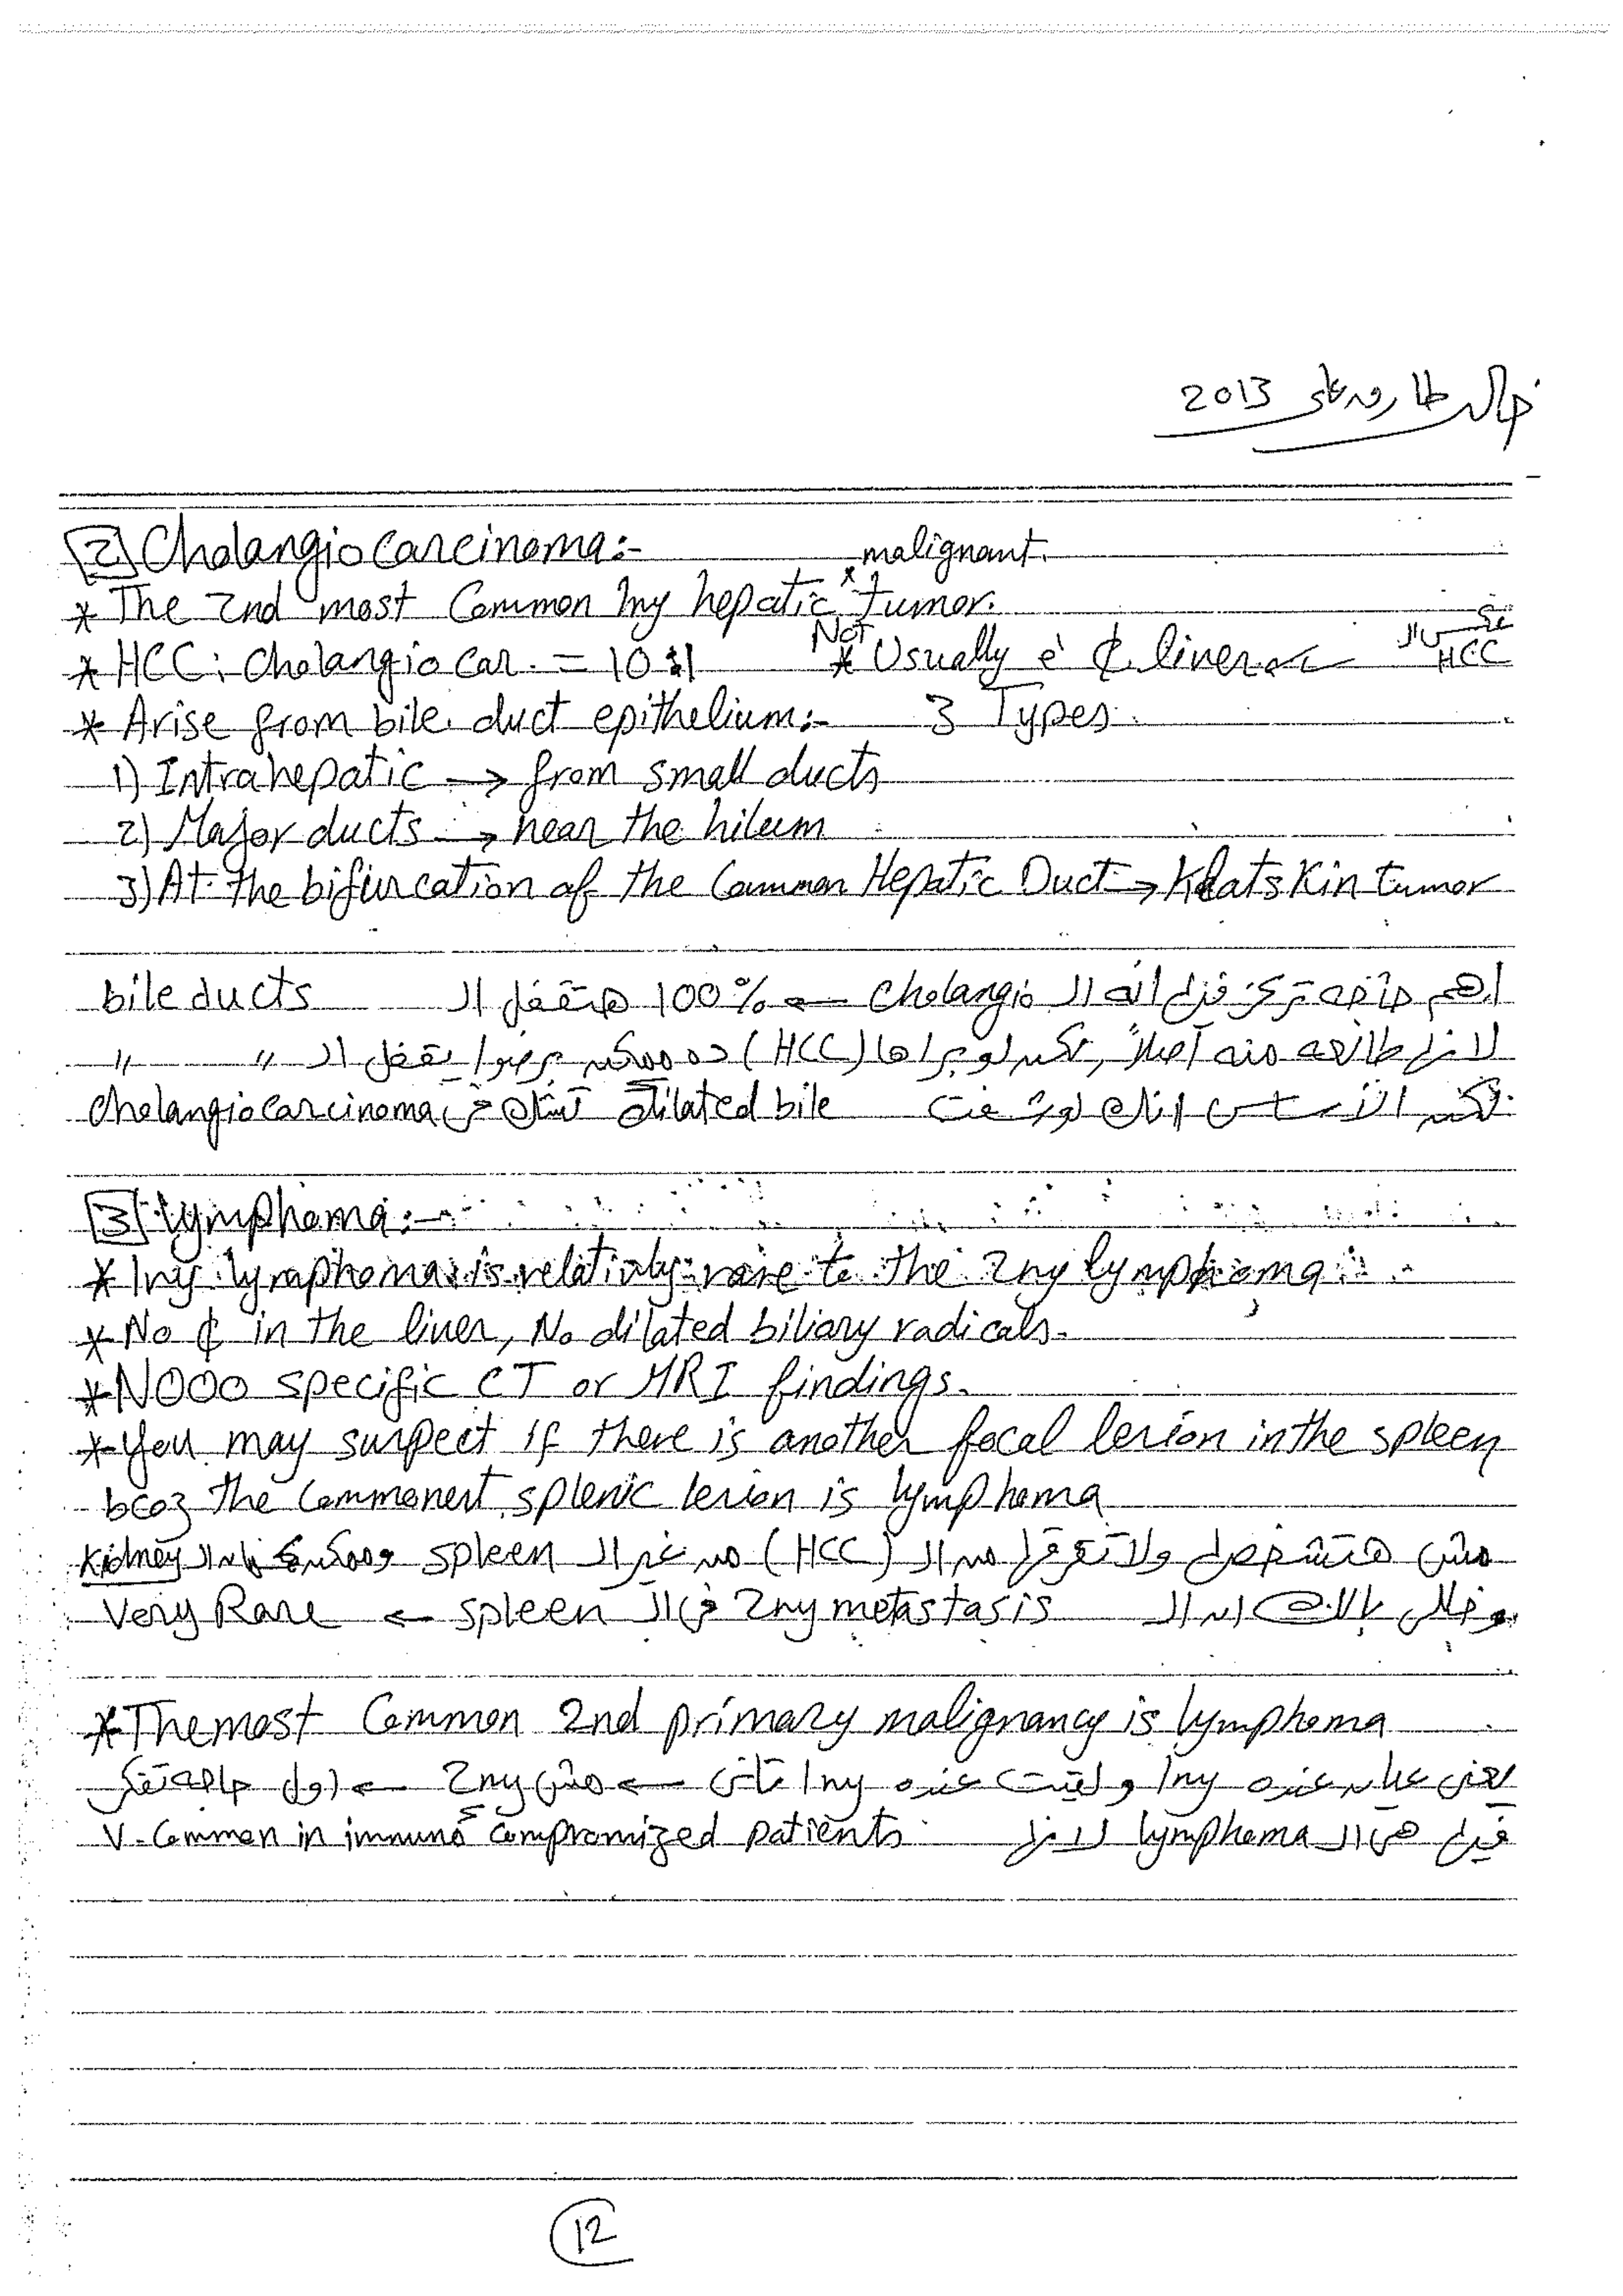 خالد طاروطي 2013
[2] Cholangiocarcinoma:-
malignant.
* The 2nd most Common 1ry hepatic * tumor.
* HCC: Cholangio car. = 10:1 NOT * Usually ē ₵ liver ← عكس ال HCC
* Arise from bile duct epithelium:- 3 Types.
1) Intrahepatic → from small ducts
2) Major ducts → near the hilum
3) At the bifurcation of the Common Hepatic Duct → Klatskin tumor
أهم حاجه تركز فيها انه ال Cholangio ← 100% هتقفل ال bile ducts
لانها طالعه منه أصلاً, لكن لو جواها (HCC) ده ممكن برضوا يقفل ال " "
لكن الأساس انك لو شفت dilated bile تشك في Cholangiocarcinoma
[3] Lymphoma:-
* 1ry lymphoma is relativly rare to the 2ry lymphoma.
* No ₵ in the liver, No dilated biliary radicals.
* NOOO specific CT or MRI findings.
* You may suspect if there is another focal lesion in the spleen
bcoz the Commonest splenic lesion is lymphoma
مش هتشخصها ولا تفرقها من ال (HCC) من غير ال spleen وممكن كمان ال Kidney
وخلي بالك ان ال 2ry metastasis في ال spleen ← Very Rare
* The most Common 2nd primary malignancy is lymphoma
يعني عيان عنده 1ry ولقيت عنده 1ry تاني ← مش 2ry ← اول حاجه تفكر
فيها هي ال lymphoma لانها V. Common in immuno compromized patients
12